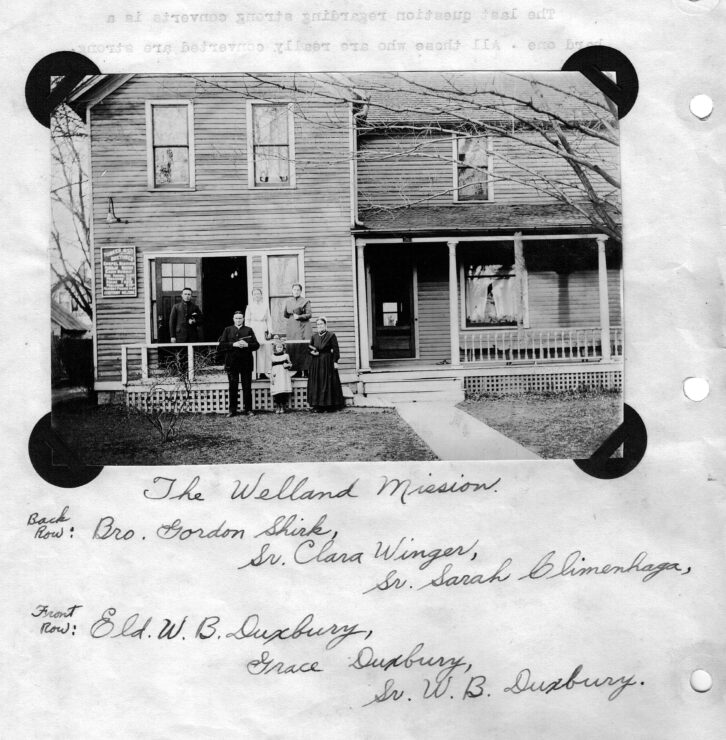 The last question regarding strong converts is a
hard one . All those who are really converted are strong.
The Welland Mission.
Back
Row: Bro. Gordon Shirk,
Sr. Clara Winger,
Sr. Sarah Climenhaga,
Front
Row: Eld. W. B. Duxbury,
Grace Duxbury,
Sr. W. B. Duxbury.